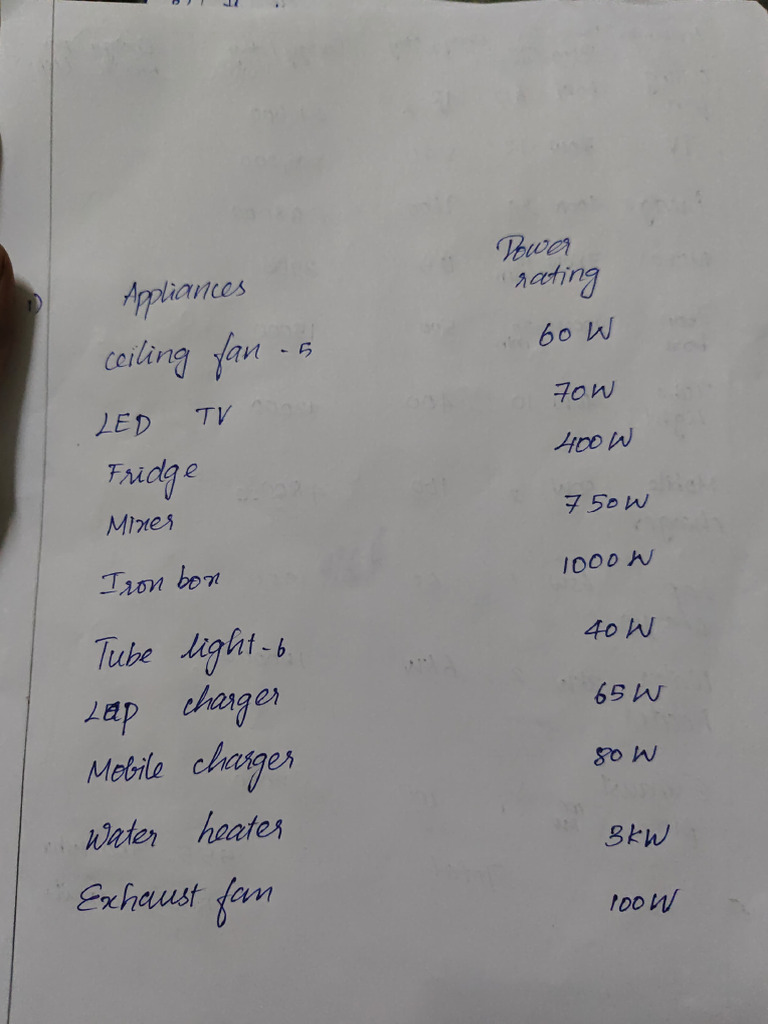 Appliances Power rating
Ceiling fan - 5 60 W
LED TV 70 W
Fridge 400 W
Mixer 750 W
Iron box 1000 W
Tube light - 6 40 W
Lap charger 65 W
Mobile charger 80 W
Water heater 3kW
Exhaust fan 100 W